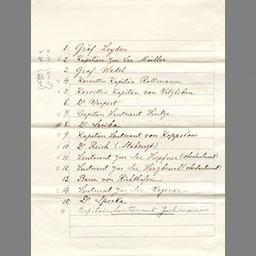 1. Graf Leyden
2. Kapitän zur See Moeller
3. Graf Wedel
4. Korvetten Kapitän Rollmann
5. Korvetten Kapitän von Witzleben
6. Dr Weipert
7. Capitän Lieutenant Hintze
8. Dr Senbo
9. Kapitän Lieutenant von Koppelow
10. Dr Reich (Stabsarzt)
11. Lieutenant zur See Hoepfner (Oberlieutenant)
12. Lieutenant zur See Herzbruch (Oberlieutenant)
13. Baron von Richthofen
14. Lieutenant zur See Wegener
15. Dr Specka
Kapitainlieutenant Jachmann